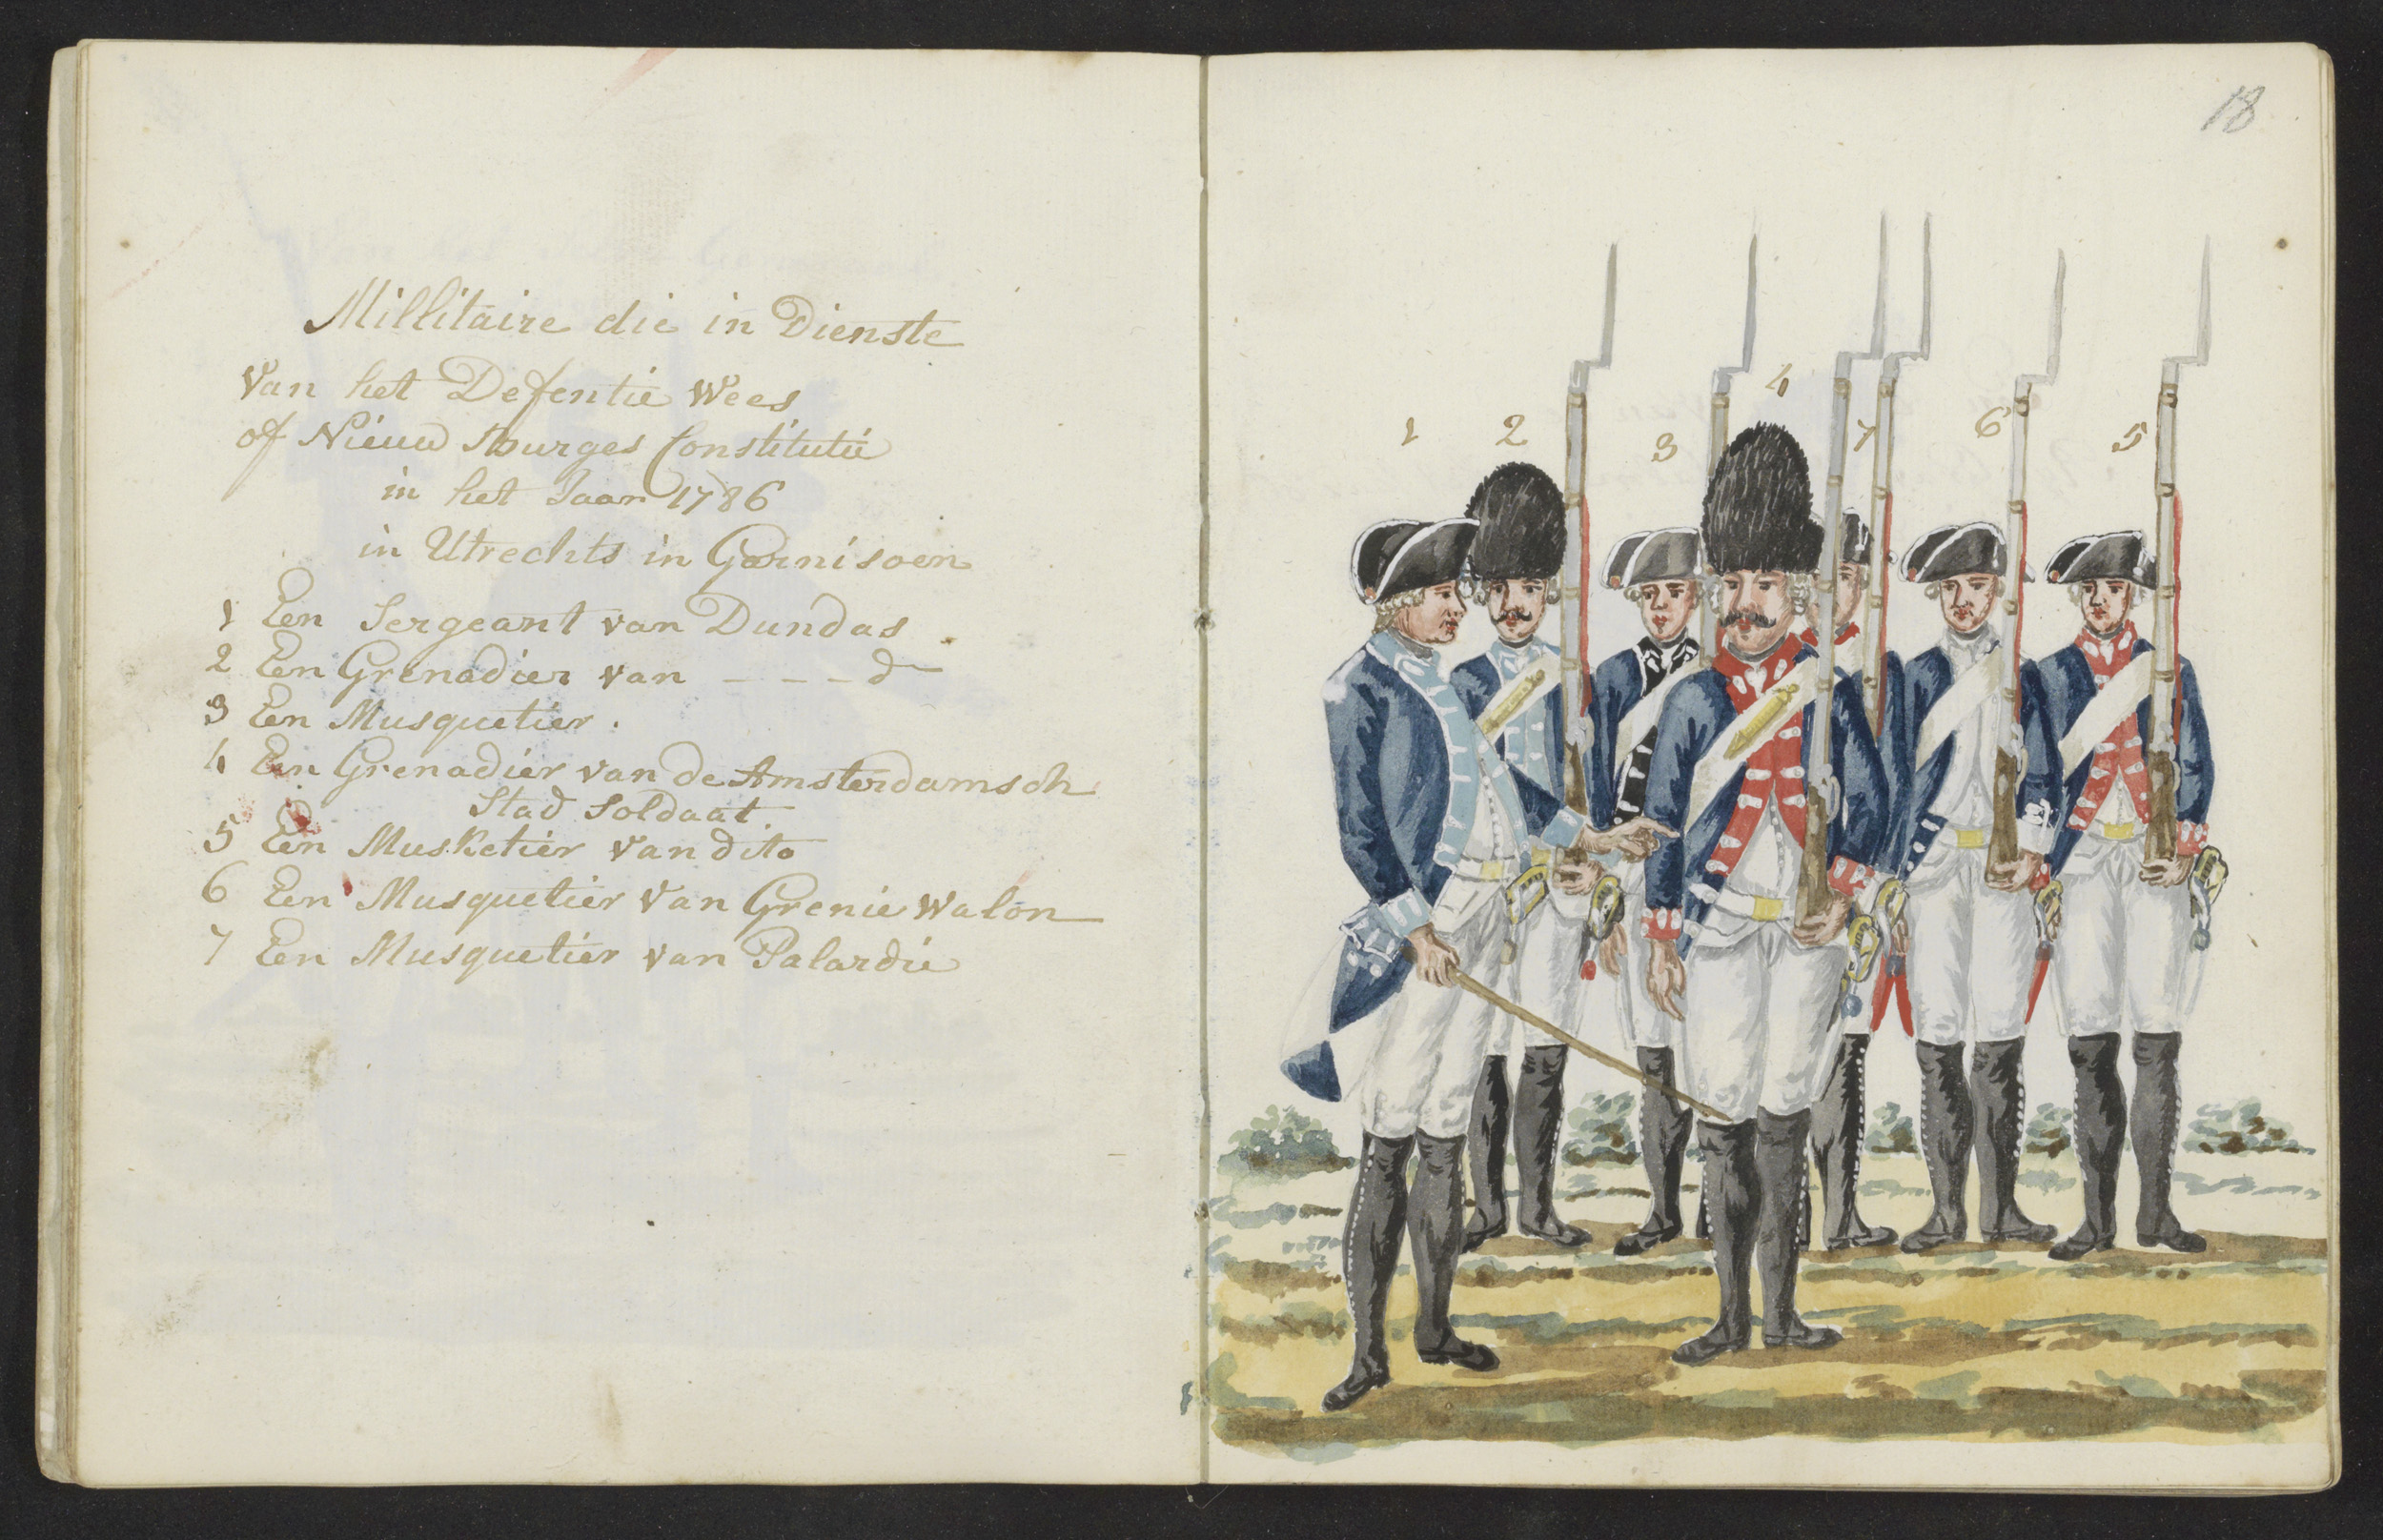 Millitaire die in Dienste
Van het Defentie Wees
of Nieuw Burges Constitutie
in het Jaar 1786
in Utrechts in Garnisoen
1 Een Sergeant van Dundas
2 Een Grenadier van - - - do
3 Een Musquetier.
4 Een Grenadier van de Amsterdamsch
Stad Soldaat.
5 Een Musketier van dito
6 Een Musquetier Van Grenie Walon
7 Een Musquetier van Palardie
18
4
1 2 3 7 6 5